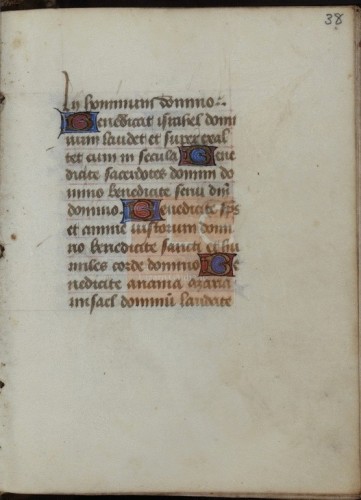 38
ly hominum domino
Benedicat israhel domi
num laudet et superexal
tet eum in secula Bene
dicite sacerdotes domini do
mino benedicite serui dn̄i
domino Benedicite sp̄s
et anime iustorum domi
no benedicite sancti et hu
miles corde domino Be
nedicite anania azaria
misael dominū laudate